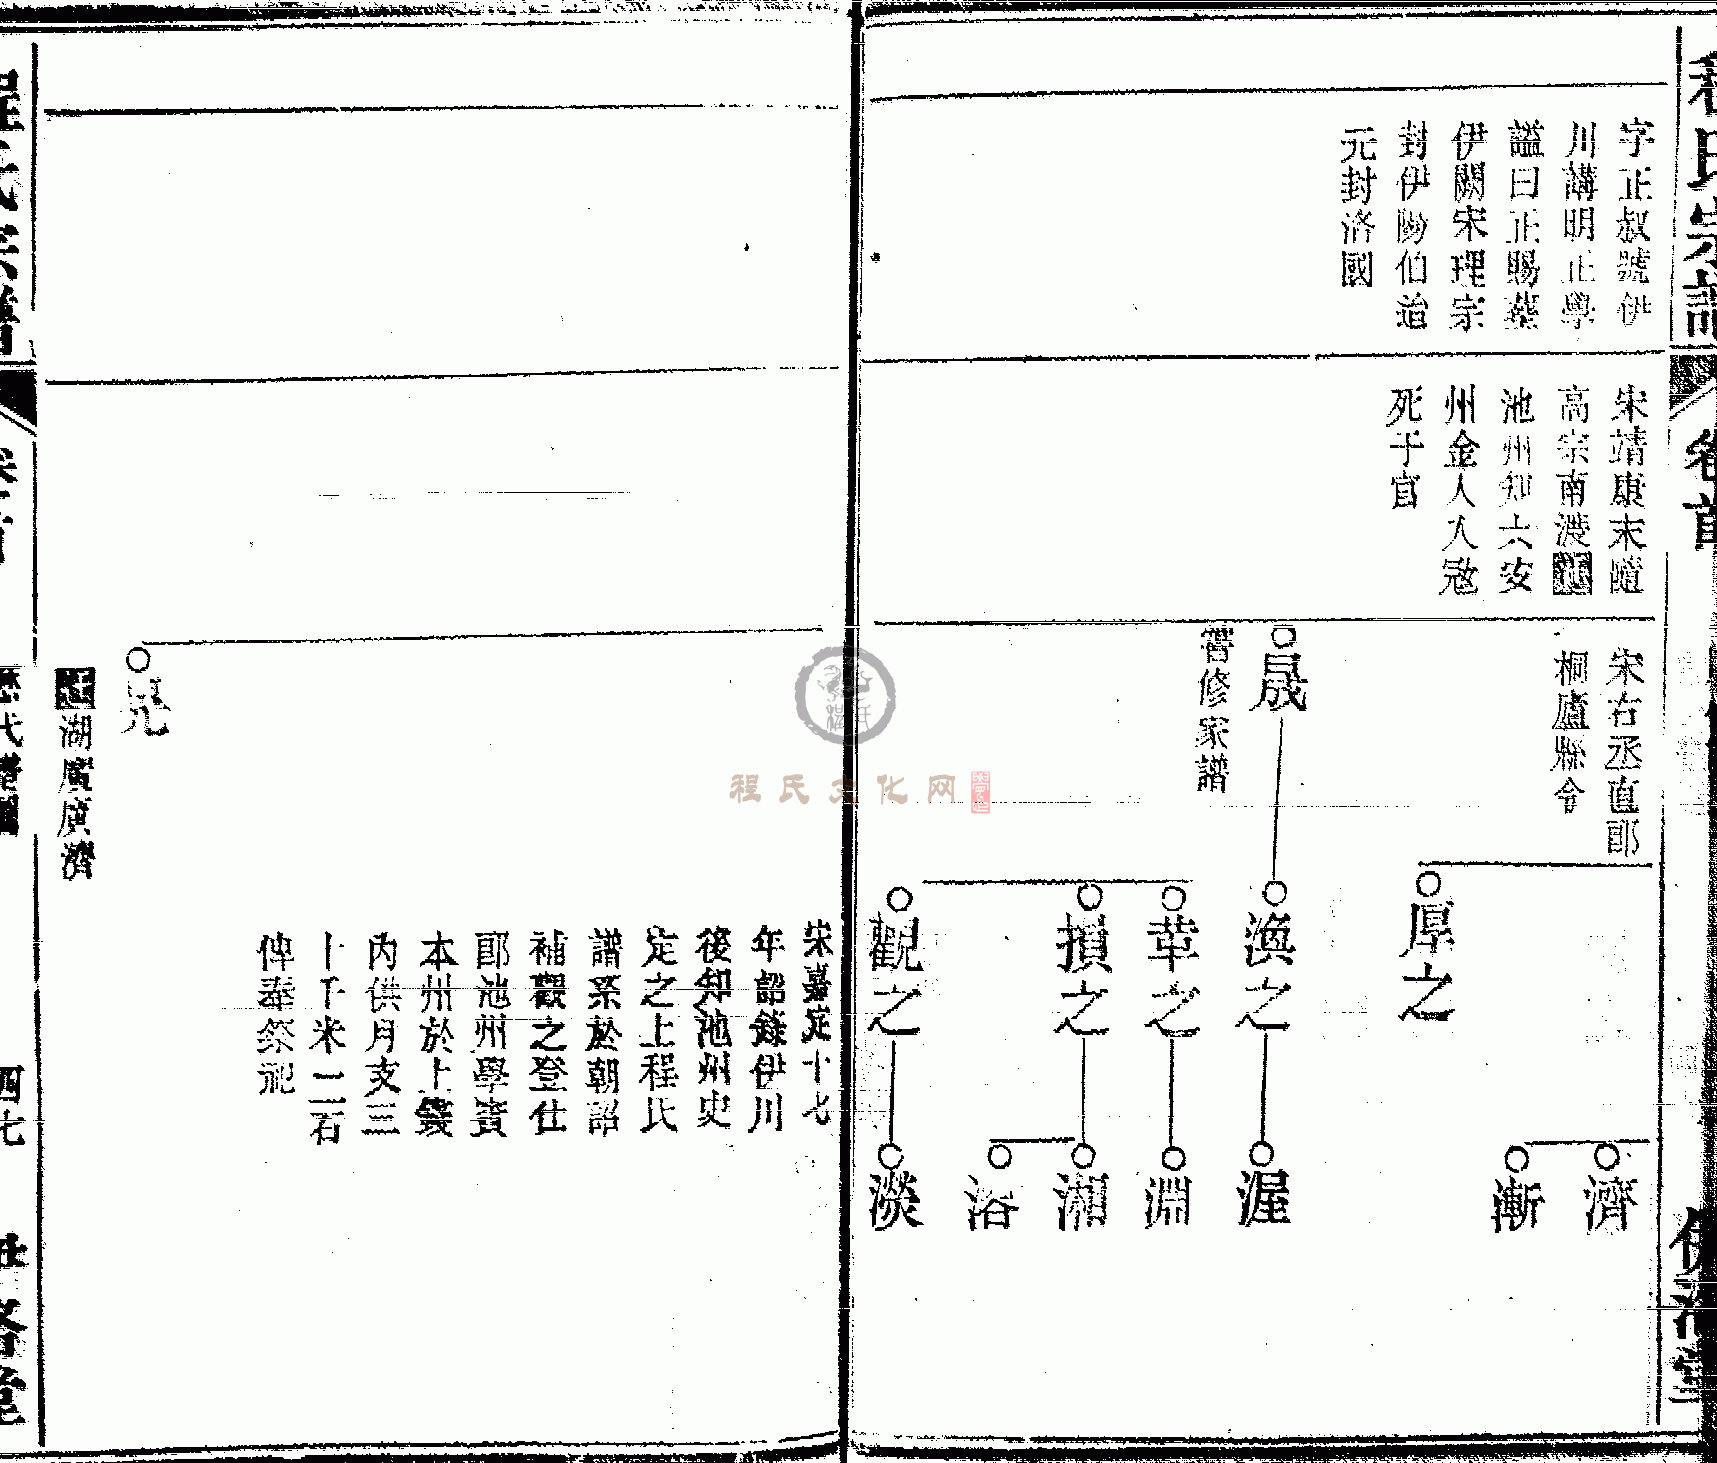 程氏宗譜
卷首
伊洛堂
字正叔號伊
川講明正學
謚曰正賜葬
伊闕宋理宗
封伊陽伯追
元封洛國
宋靖康末隨
高宗南渡遷
池州知六安
州金人入寇
死于官
宋右丞直郎
桐廬縣令
晟
嘗修家譜
厚之
渙之
革之
損之
觀之
濟
漸
渥
淵
湘
洛
淡
宋嘉定十七
年詔錄伊川
後知池州史
定之上程氏
譜系於朝詔
補觀之登仕
郎池州學賓
本州於上錢
內供月支三
十千米二石
俾奉祭祀
晃
遷湖廣廣濟
程氏宗譜
卷首
歷代譜圖
四七
伊洛堂
程氏文化网